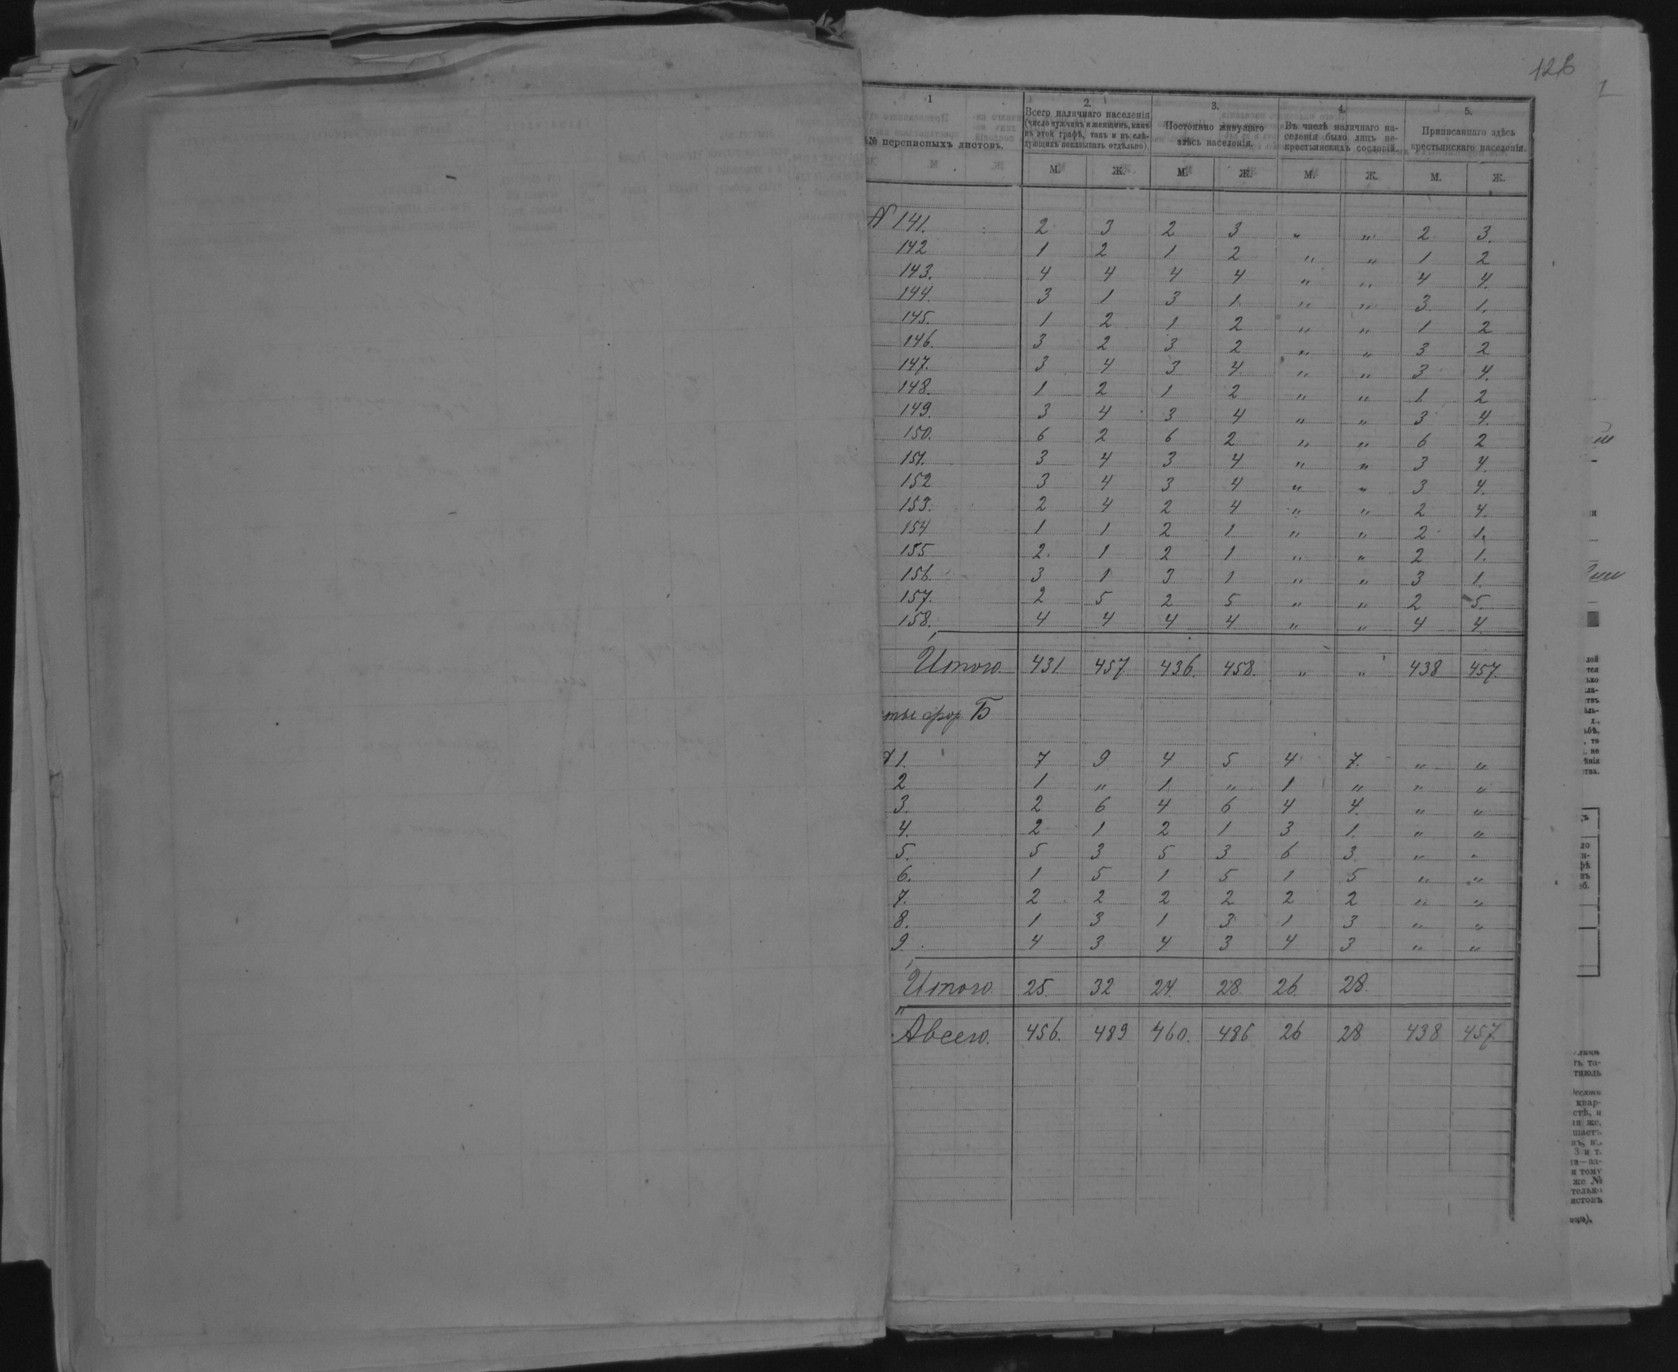 126
1 2. 3. 4. 5.
№ переписныхъ листовъ. Всего наличнаго населенія (число мужчинъ и женщинъ, какъ въ этой графѣ, такъ и въ слѣдующихъ показывать отдѣльно). Постоянно живущаго здѣсь населенія. Въ числѣ наличнаго населенія было лицъ некрестьянскихъ сословій. Приписаннаго здѣсь крестьянскаго населенія.
М. Ж. М. Ж. М. Ж. М. Ж.
№ 141. 2 3 2 3 „ „ 2 3.
142 1 2 1 2 „ „ 1 2
143. 4 4 4 4 „ „ 4 4.
144. 3 1 3 1 „ „ 3. 1.
145. 1 2 1 2 „ „ 1 2
146. 3 2 3 2 „ „ 3 2
147. 3 4 3 4 „ „ 3 4.
148. 1 2 1 2 „ „ 1 2
149. 3 4 3 4 „ „ 3 4.
150. 6 2 6 2 „ „ 6 2
151. 3 4 3 4 „ „ 3 4.
152 3 4 3 4 „ „ 3 4.
153. 2 4 2 4 „ „ 2 4.
154 1 1 2 1 „ „ 2 1.
155 2. 1 2 1 „ „ 2 1.
156. 3 1 3 1 „ „ 3 1.
157. 2 5 2 5 „ „ 2 5.
158. 4 4 4 4 „ „ 4 4.
Итого. 431 457 436. 458. „ „ 438 457.
ты фор Б
1. 7 9 4 5 4 7. „ „
2 1 „ 1. „ 1 „ „ „
3. 2 6 4 6 4 4. „ „
4. 2 1 2 1 3 1. „ „
5. 5 3 5 3 6 3. „ „
6. 1 5 1 5 1 5 „ „
7. 2 2 2 2 2 2 „ „
8. 1 3 1 3 1 3 „ „
9. 4 3 4 3 4 3 „ „
Итого. 25. 32 24. 28. 26. 28.
Авсего. 456. 489 460. 486 26 28 438 457.